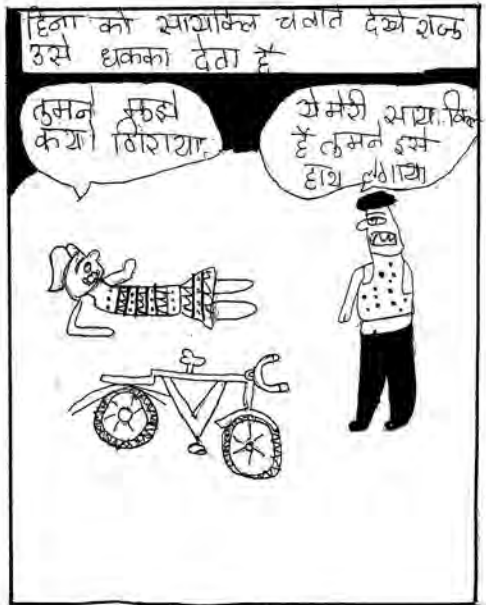 हिना को सायकिल चलाते देख राजु
उसे धकका देता है
तुमने मुझे
कयो गिराया.
ये मेरी सायकिल
है तुमने इसे
हाथ लगाया